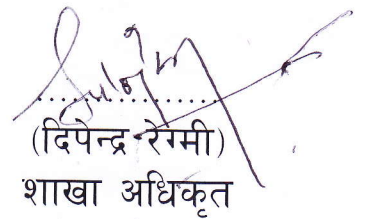 (दिपेन्द्र रेग्मी)
शाखा अधिकृत